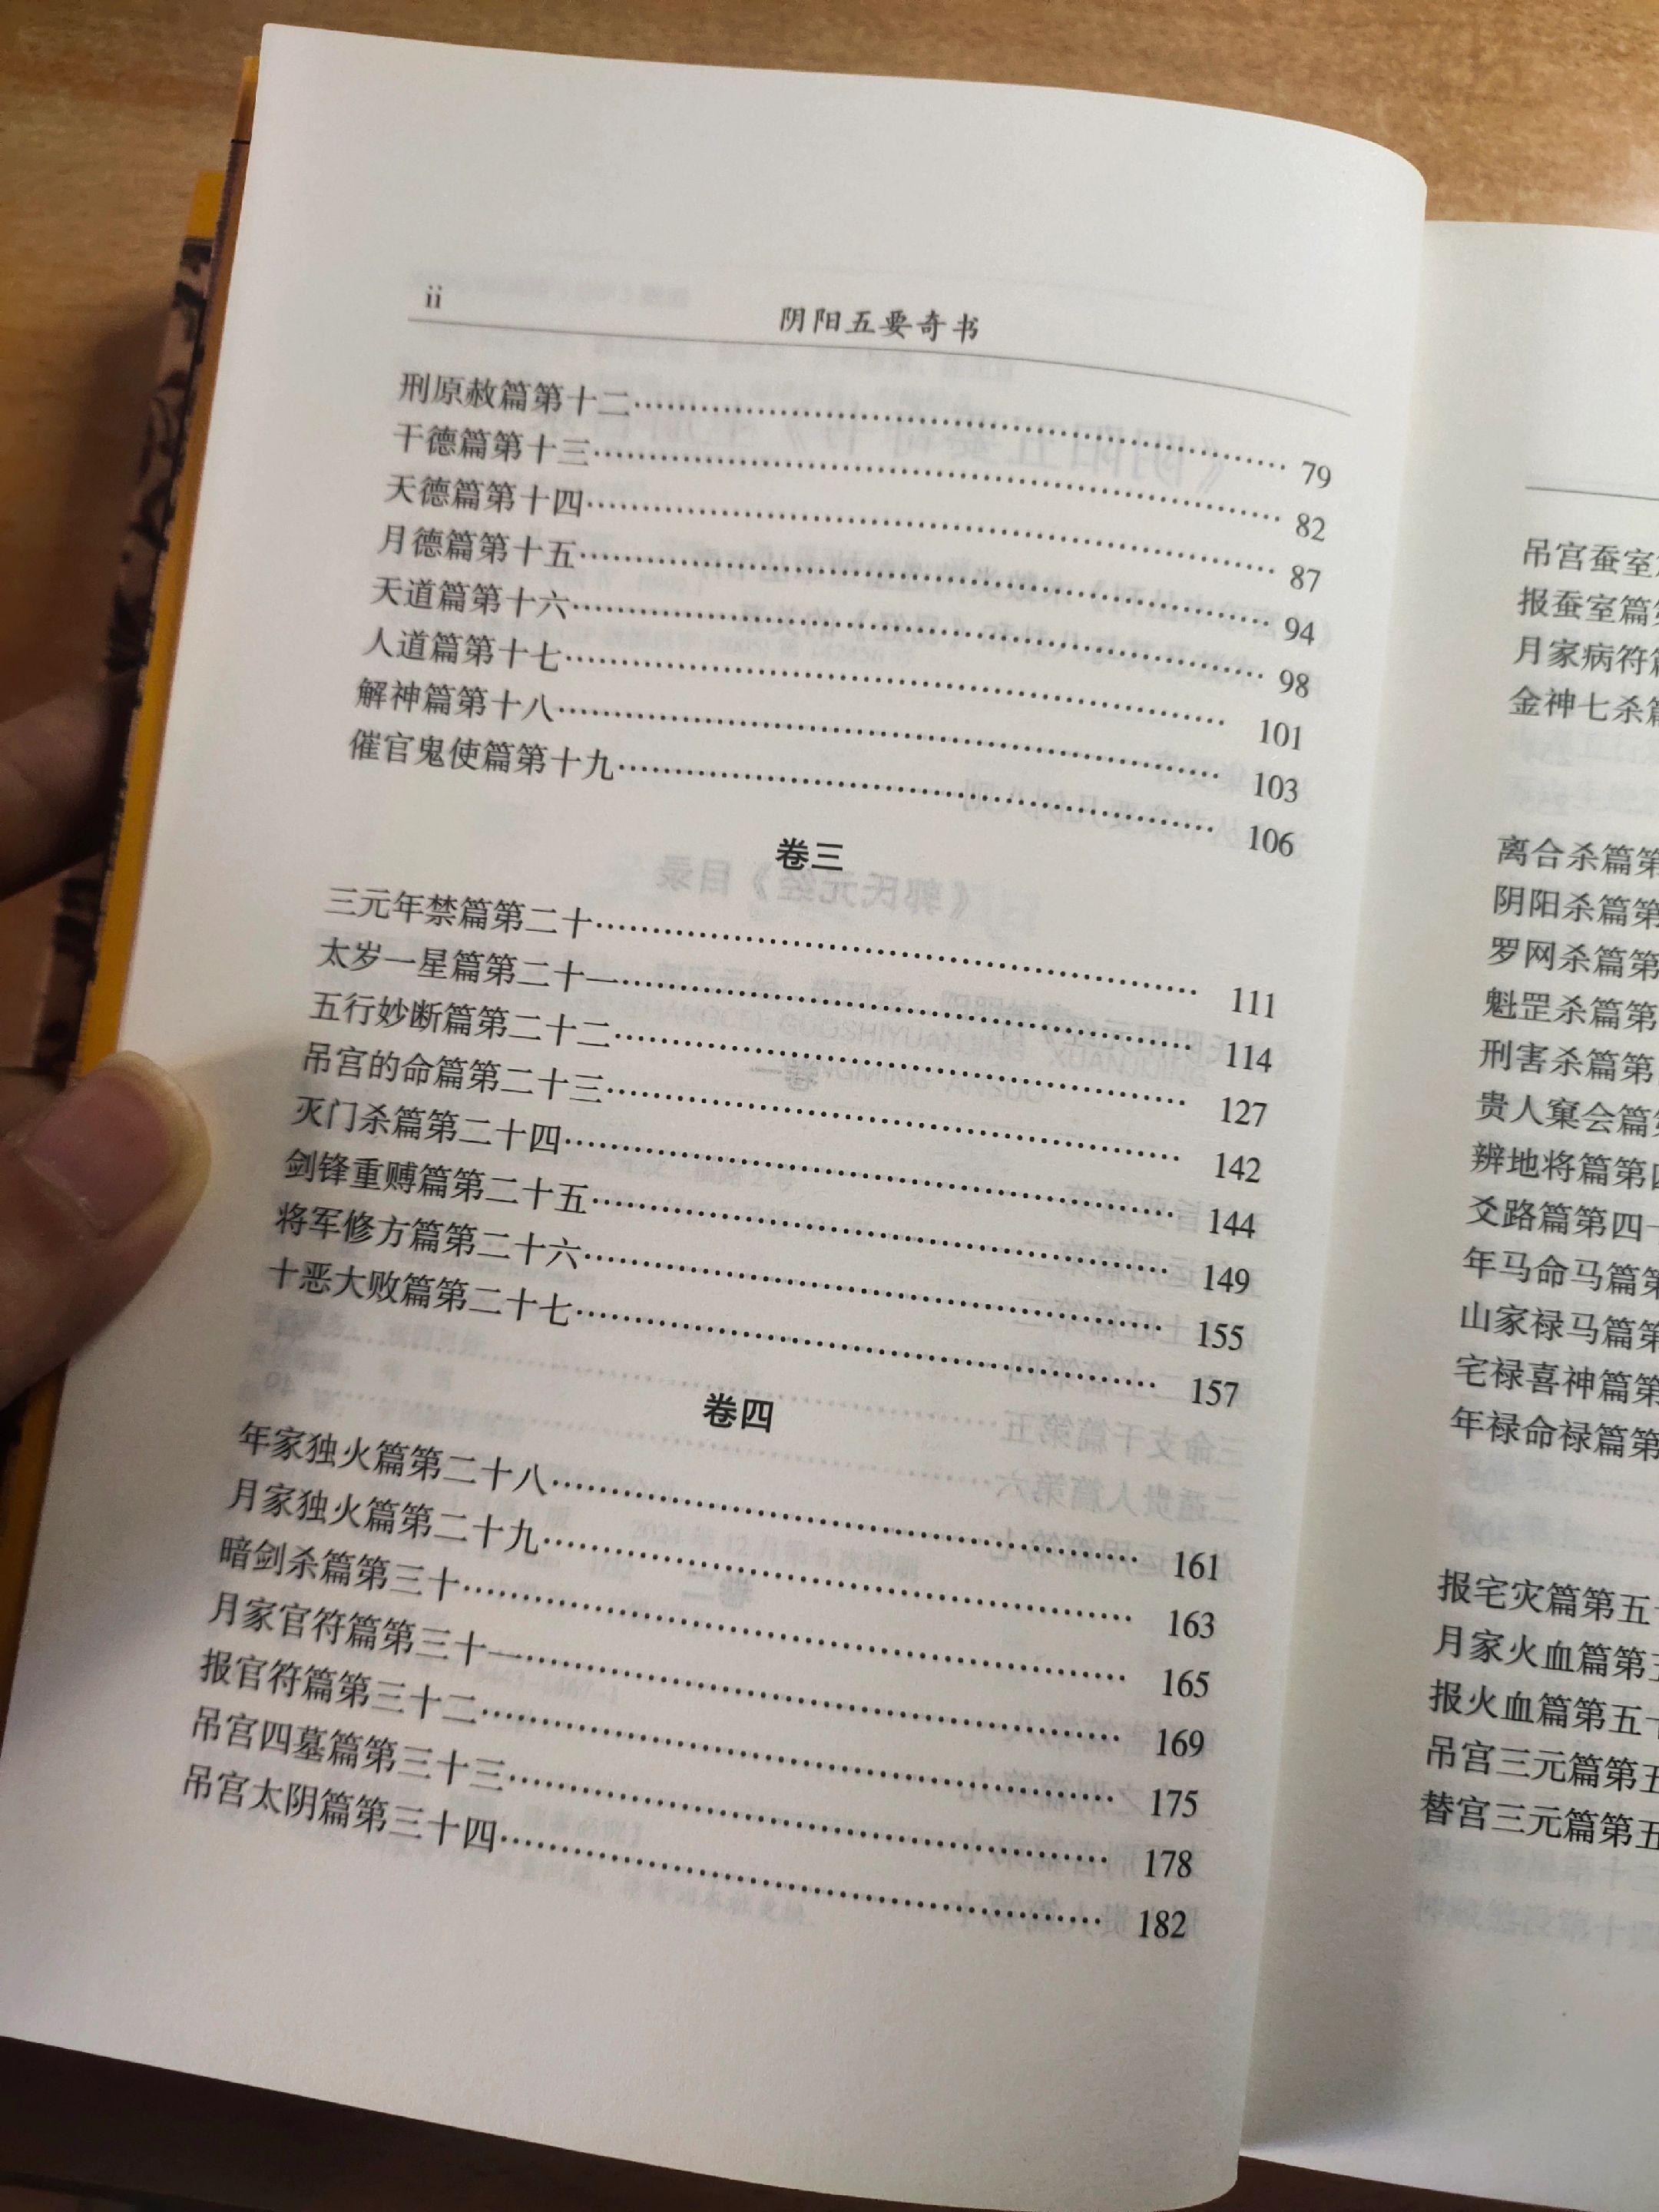 ii
阴阳五要奇书
刑原赦篇第十二 79
干德篇第十三 82
天德篇第十四 87
月德篇第十五 94
天道篇第十六 98
人道篇第十七 101
解神篇第十八 103
催官鬼使篇第十九 106
卷三
三元年禁篇第二十 111
太岁一星篇第二十一 114
五行妙断篇第二十二 127
吊宫的命篇第二十三 142
灭门杀篇第二十四 144
剑锋重赙篇第二十五 149
将军修方篇第二十六 155
十恶大败篇第二十七 157
卷四
年家独火篇第二十八 161
月家独火篇第二十九 163
暗剑杀篇第三十 165
月家官符篇第三十一 169
报官符篇第三十二 175
吊宫四墓篇第三十三 178
吊宫太阴篇第三十四 182
吊宫蚕室
报蚕室篇
月家病符
金神七杀
离合杀篇第
阴阳杀篇第
罗网杀篇第
魁罡杀篇第
刑害杀篇第
贵人窠会篇
辨地将篇第
爻路篇第四
年马命马篇
山家禄马篇第
宅禄喜神篇第
年禄命禄篇第
报宅灾篇第五
月家火血篇第
报火血篇第五
吊宫三元篇第五
替宫三元篇第五